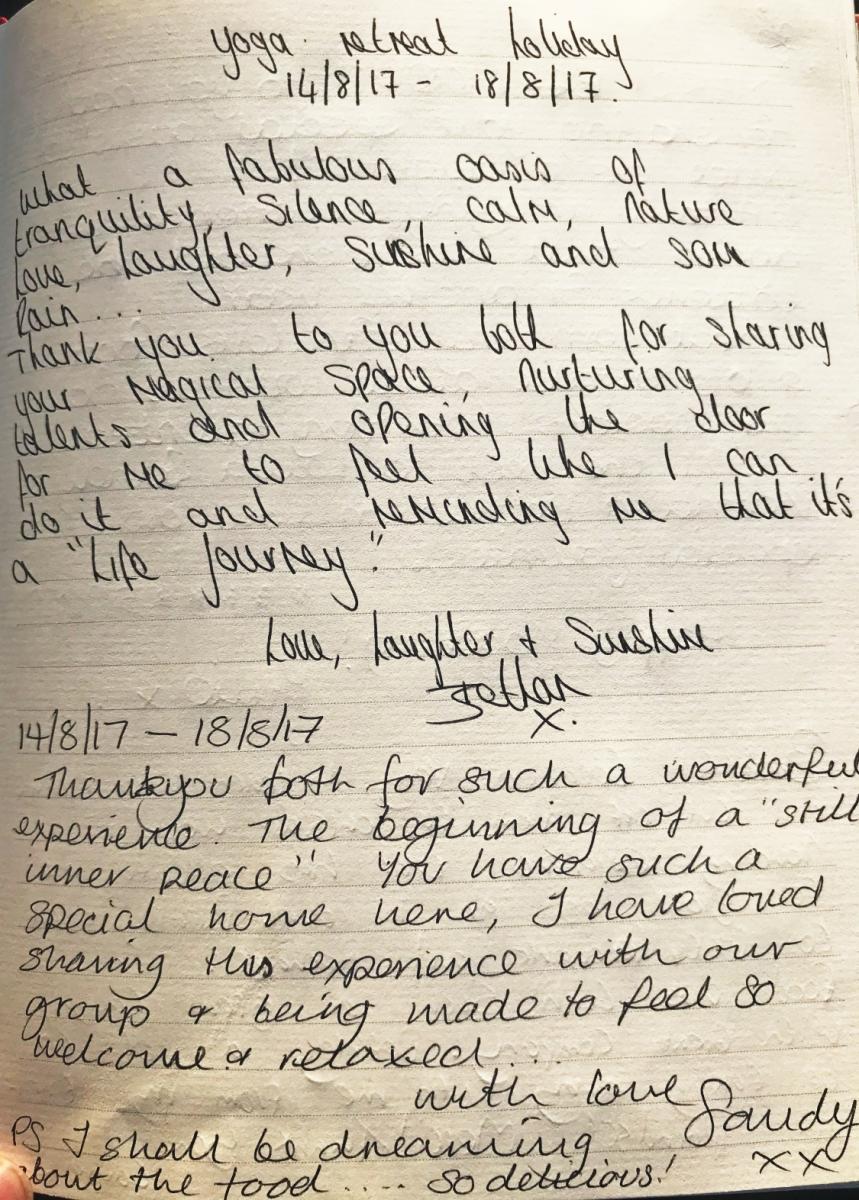 yoga retreat holiday
14/8/17 - 18/8/17.
What a fabulous oasis of
tranquility, silence, calm, nature
love, laughter, sunshine and some
Rain...
Thank you to you both for sharing
your magical space, nurturing
talents and opening the door
for me to feel like I can
do it and reminding me that it's
a "Life journey".
Love, Laughter + Sunshine
x.
14/8/17 — 18/8/17
Thankyou both for such a wonderful
experience. The beginning of a "still
inner peace" You have such a
special home here, I have loved
sharing this experience with our
group & being made to feel so
welcome & relaxed....
with love Sandy
PS I shall be dreaming xx
about the food.... so delicious!